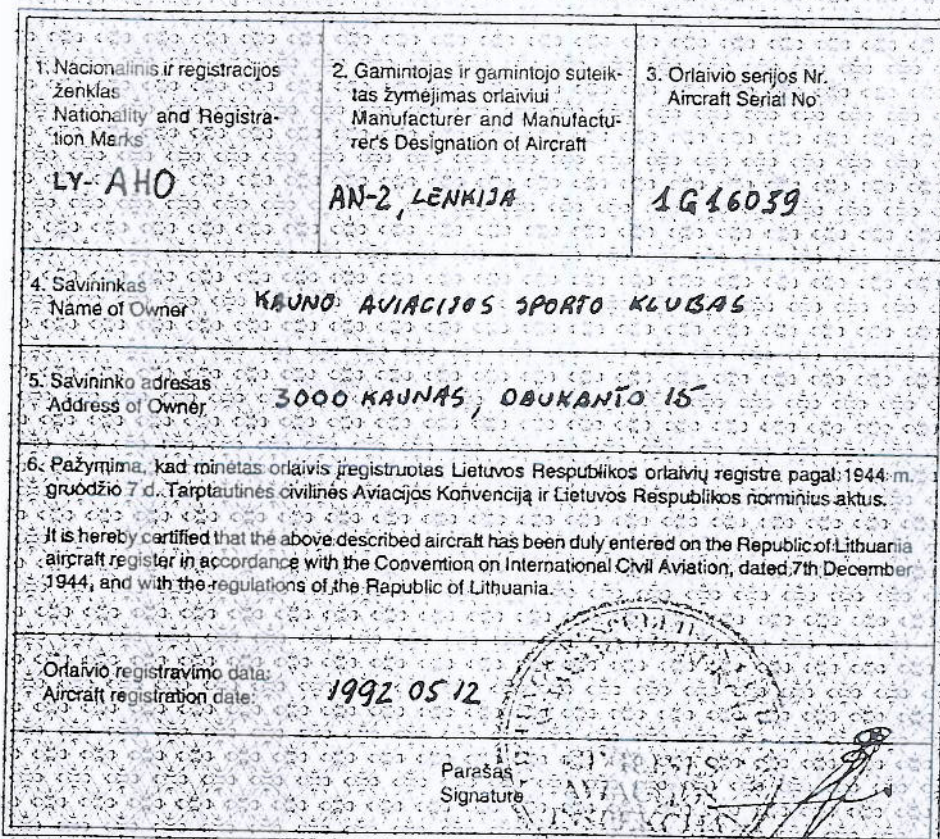 1. Nacionalinis ir registracijos
ženklas
Nationality and Registra-
tion Marks
LY-AHO
2. Gamintojas ir gamintojo suteik-
tas žymėjimas orlaiviui
Manufacturer and Manufactu-
rer's Designation of Aircraft
AN-2, LENKIJA
3. Orlaivio serijos Nr.
Aircraft Serial No
1G16039
4. Savininkas
Name of Owner
KAUNO AVIACIJOS SPORTO KLUBAS
5. Savininko adresas
Address of Owner
3000 KAUNAS, DAUKANTO 15
6. Pažymima, kad minėtas orlaivis įregistruotas Lietuvos Respublikos orlaivių registre pagal 1944 m.
gruodžio 7 d. Tarptautinės civilinės Aviacijos Konvenciją ir Lietuvos Respublikos norminius aktus.
It is hereby certified that the above described aircraft has been duly entered on the Republic of Lithuania
aircraft register in accordance with the Convention on International Civil Aviation, dated 7th December
1944, and with the regulations of the Republic of Lithuania.
Orlaivio registravimo data
Aircraft registration date
1992 05 12
Parašas
Signature